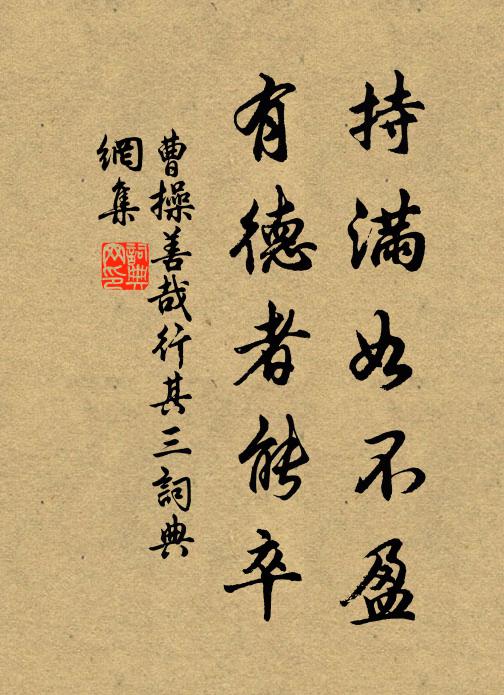 持满如不盈
有德者能卒
曹操善哉行其三詞典
網集
詞典网印